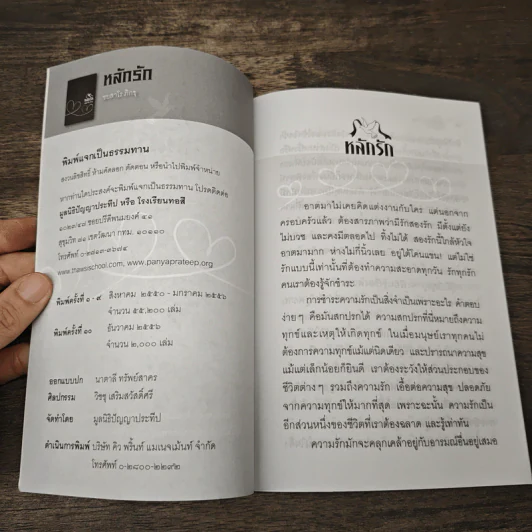 หลักรัก
ชยสาโร ภิกขุ
พิมพ์แจกเป็นธรรมทาน
สงวนลิขสิทธิ์ ห้ามคัดลอก ตัดตอน หรือนำไปพิมพ์จำหน่าย
หากท่านใดประสงค์จะพิมพ์แจกเป็นธรรมทาน โปรดติดต่อ
มูลนิธิปัญญาประทีป หรือ โรงเรียนทอสี
๑๐๒๓/๔๗ ซอยปรีดีพนมยงค์ ๔๑
สุขุมวิท ๗๑ เขตวัฒนา กทม. ๑๐๑๑๐
โทรศัพท์ ๐-๒๗๑๓-๓๖๗๔
www.thawsischool.com, www.panyaprateep.org
พิมพ์ครั้งที่ ๑ - ๙ สิงหาคม ๒๕๕๐ - มกราคม ๒๕๕๖
จำนวน ๕๕,๒๐๐ เล่ม
พิมพ์ครั้งที่ ๑๐ ธันวาคม ๒๕๕๖
จำนวน ๒,๐๐๐ เล่ม
ออกแบบปก นาตาลี ทรัพย์สาคร
ศิลปกรรม วิชชุ เสริมสวัสดิ์ศรี
จัดทำโดย มูลนิธิปัญญาประทีป
ดำเนินการพิมพ์ บริษัท คิว พริ้นท์ แมเนจเม้นท์ จำกัด
โทรศัพท์ ๐-๒๘๐๐-๒๒๙๒
หลักรัก
อาตมาไม่เคยคิดแต่งงานกับใคร แต่นอกจาก
ครอบครัวแล้ว ต้องสารภาพว่ามีรักสองรัก มีตั้งแต่ยัง
ไม่บวช และคงมีตลอดไป ทิ้งไม่ได้ สองรักนี้ใกล้หัวใจ
อาตมามาก ห่างไม่กี่นิ้วเลย อยู่ใต้โคนแขน! แต่ไม่ใช่
รักแบบนี้เท่านั้นที่ต้องทำความสะอาดทุกวัน รักทุกรัก
คนเราต้องรู้จักชำระ
การชำระความรักเป็นสิ่งจำเป็นเพราะอะไร คำตอบ
ง่ายๆ คือมันสกปรกได้ ความสกปรกที่นี่หมายถึงความ
ทุกข์และเหตุให้เกิดทุกข์ ในเมื่อมนุษย์เราทุกคนไม่
ต้องการความทุกข์แม้แต่นิดเดียว และปรารถนาความสุข
แม้แต่เล็กน้อยก็ยินดี เราต้องระวังให้ส่วนประกอบของ
ชีวิตต่างๆ รวมถึงความรัก เอื้อต่อความสุข ปลอดภัย
จากความทุกข์ให้มากที่สุด เพราะฉะนั้น ความรักเป็น
อีกส่วนหนึ่งของชีวิตที่เราต้องฉลาด และรู้เท่าทัน
ความรักมักจะคลุกเคล้าอยู่กับอารมณ์อื่นอยู่เสมอ